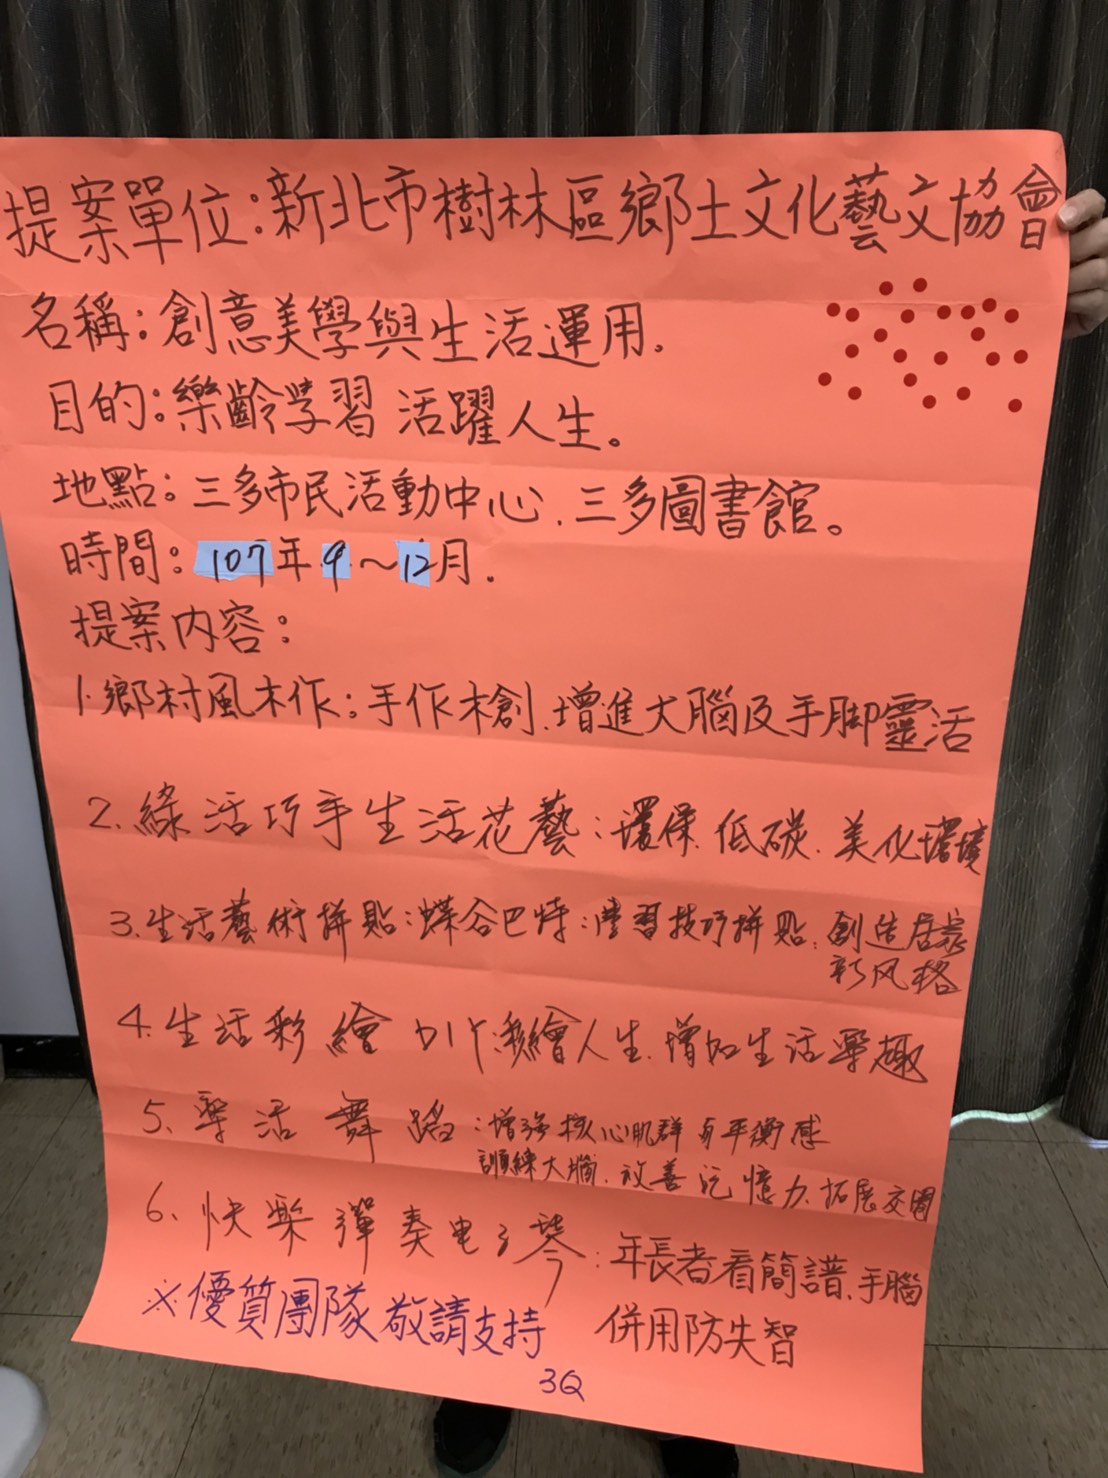 提案單位:新北市樹林區鄉土文化藝文協會
名稱:創意美學與生活運用.
目的:樂齡学習 活躍人生。
地點:三多市民活動中心、三多圖書館。
時間:107年9~12月.
提案內容:
1.鄉村風木作:手作木創.增進大腦及手脚靈活
2.綠活巧手生活花藝:環保.低碳.美化環境
3.生活藝術拼貼:蝶谷巴特:學習技巧拼貼.創造居家
新风格
4.生活彩繪 DIY.彩繪人生.增加生活樂趣
5、樂活舞蹈:增強核心肌群与平衡感
訓練大腦.改善记憶力.拓展交圈
6、快樂彈奏电子琴:年長者看簡譜、手腦
併用防失智
※優質團隊敬請支持
3Q